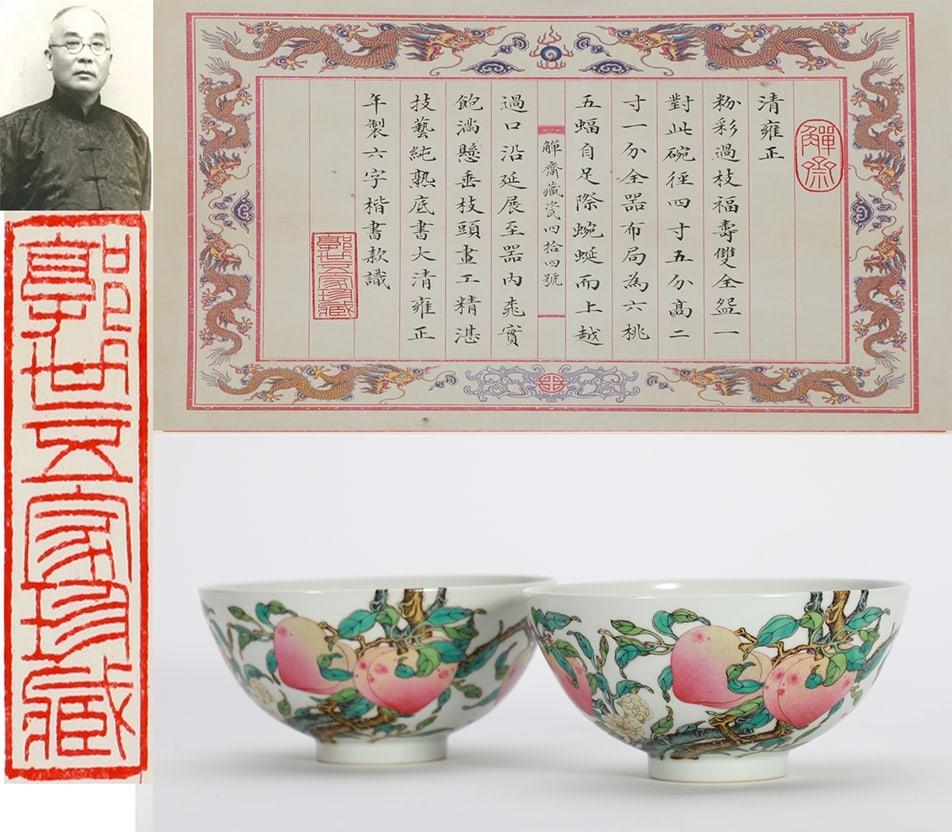 觶齋
清雍正
粉彩過枝福壽雙全盌一
對此碗徑四寸五分高二
寸一分全器布局為六桃
五蝠自足際蜿蜒而上越
觶齋藏瓷四拾四號
過口沿延展至器內桃實
飽滿懸垂枝頭畫工精湛
技藝純熟底書大清雍正
年製六字楷書款識
郭世五家珍藏
郭世五家珍藏